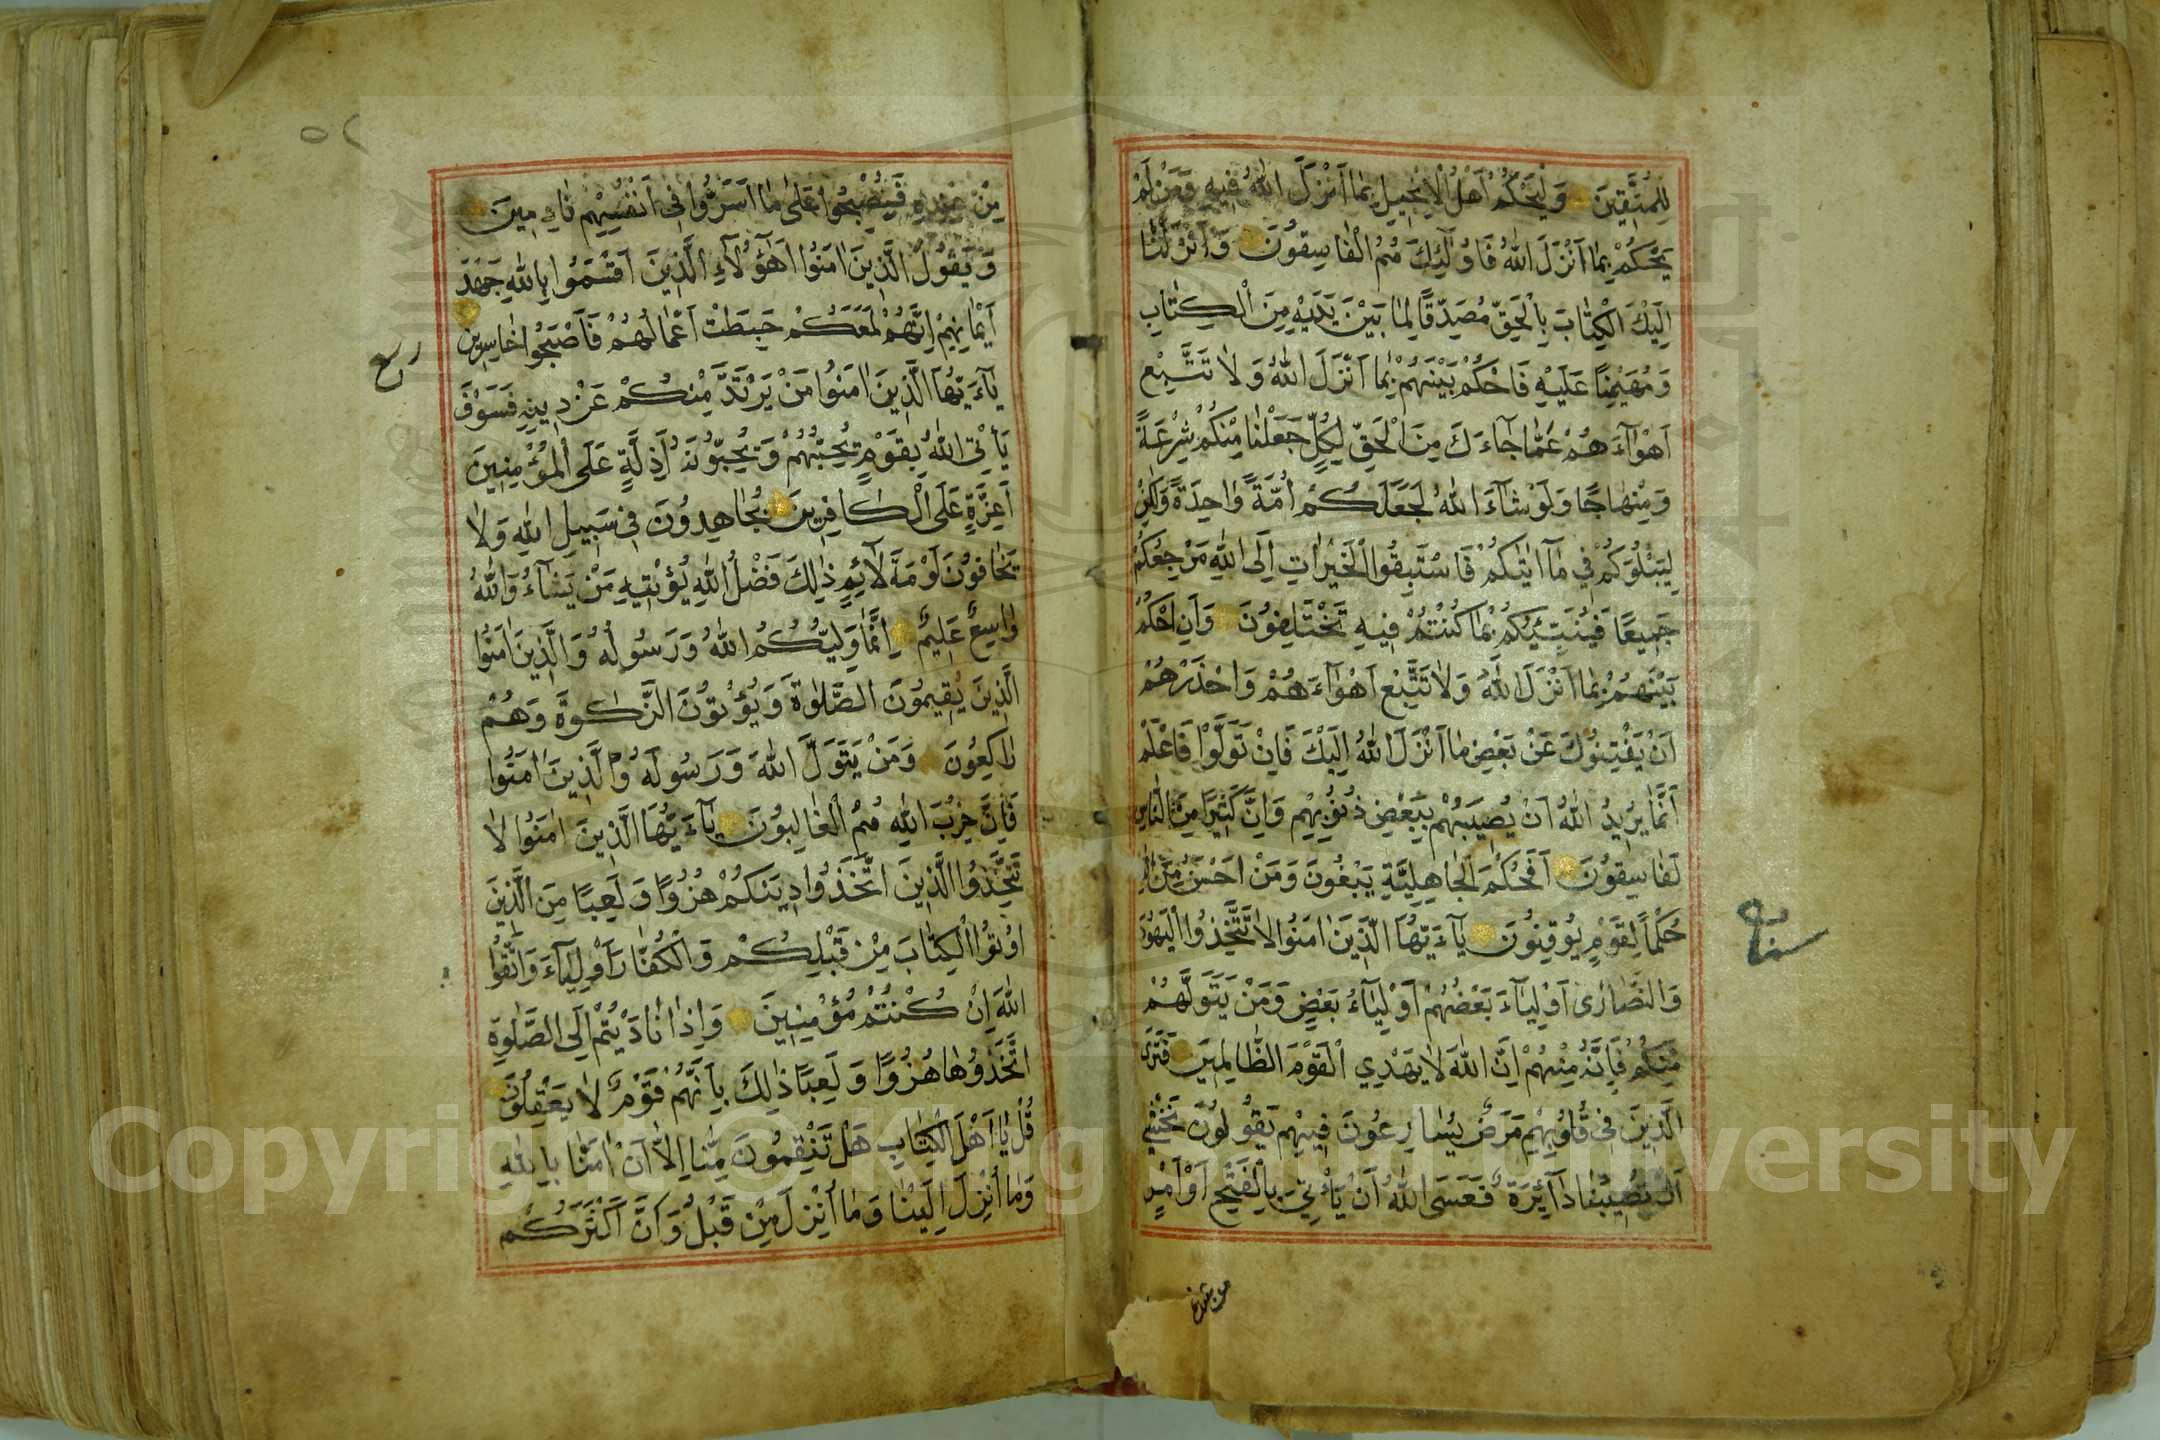 لِلْمُتَّقِينَ وَلْيَحْكُمْ اَهْلُ الْاِنْجِيلِ بِمَا اَنْزَلَ اللّٰهُ فِيهِ وَمَنْ لَمْ
يَحْكُمْ بِمَا اَنْزَلَ اللّٰهُ فَاُولٰٓئِكَ هُمُ الْفَاسِقُونَ وَاَنْزَلْنَا
اِلَيْكَ الْكِتَابَ بِالْحَقِّ مُصَدِّقًا لِمَا بَيْنَ يَدَيْهِ مِنَ الْكِتَابِ
وَمُهَيْمِنًا عَلَيْهِ فَاحْكُمْ بَيْنَهُمْ بِمَا اَنْزَلَ اللّٰهُ وَلَا تَتَّبِعْ
اَهْوَآءَهُمْ عَمَّا جَآءَكَ مِنَ الْحَقِّ لِكُلٍّ جَعَلْنَا مِنْكُمْ شِرْعَةً
وَمِنْهَاجًا وَلَوْ شَآءَ اللّٰهُ لَجَعَلَكُمْ اُمَّةً وَاحِدَةً وَلٰكِنْ
لِيَبْلُوَكُمْ فِي مَآ اٰتٰيكُمْ فَاسْتَبِقُوا الْخَيْرَاتِ اِلَى اللّٰهِ مَرْجِعُكُمْ
جَمِيعًا فَيُنَبِّئُكُمْ بِمَا كُنْتُمْ فِيهِ تَخْتَلِفُونَ وَاَنِ احْكُمْ
بَيْنَهُمْ بِمَا اَنْزَلَ اللّٰهُ وَلَا تَتَّبِعْ اَهْوَآءَهُمْ وَاحْذَرْهُمْ
اَنْ يَفْتِنُوكَ عَنْ بَعْضِ مَا اَنْزَلَ اللّٰهُ اِلَيْكَ فَاِنْ تَوَلَّوْا فَاعْلَمْ
اَنَّمَا يُرِيدُ اللّٰهُ اَنْ يُصِيبَهُمْ بِبَعْضِ ذُنُوبِهِمْ وَاِنَّ كَثِيرًا مِنَ النَّاسِ
لَفَاسِقُونَ اَفَحُكْمَ الْجَاهِلِيَّةِ يَبْغُونَ وَمَنْ اَحْسَنُ مِنَ اللّٰهِ
حُكْمًا لِقَوْمٍ يُوقِنُونَ يَآءَيُّهَا الَّذِينَ اٰمَنُوا لَا تَتَّخِذُوا الْيَهُودَ
وَالنَّصَارٰى اَوْلِيَآءَ بَعْضُهُمْ اَوْلِيَآءُ بَعْضٍ وَمَنْ يَتَوَلَّهُمْ
مِنْكُمْ فَاِنَّهُ مِنْهُمْ اِنَّ اللّٰهَ لَا يَهْدِي الْقَوْمَ الظَّالِمِينَ فَتَرَى
الَّذِينَ فِي قُلُوبِهِمْ مَرَضٌ يُسَارِعُونَ فِيهِمْ يَقُولُونَ نَخْشٰى
اَنْ تُصِيبَنَا دَآئِرَةٌ فَعَسَى اللّٰهُ اَنْ يَأْتِيَ بِالْفَتْحِ اَوْ اَمْرٍ
من عنده
مِنْ عِنْدِهِ فَيُصْبِحُوا عَلٰى مَا اَسَرُّوا فِي اَنْفُسِهِمْ نَادِمِينَ
وَيَقُولُ الَّذِينَ اٰمَنُوا اَهٰٓؤُلَآءِ الَّذِينَ اَقْسَمُوا بِاللّٰهِ جَهْدَ
اَيْمَانِهِمْ اِنَّهُمْ لَمَعَكُمْ حَبِطَتْ اَعْمَالُهُمْ فَاَصْبَحُوا خَاسِرِينَ
يَآءَيُّهَا الَّذِينَ اٰمَنُوا مَنْ يَرْتَدَّ مِنْكُمْ عَنْ دِينِهِ فَسَوْفَ
يَأْتِي اللّٰهُ بِقَوْمٍ يُحِبُّهُمْ وَيُحِبُّونَهُ اَذِلَّةٍ عَلَى الْمُؤْمِنِينَ
اَعِزَّةٍ عَلَى الْكَافِرِينَ يُجَاهِدُونَ فِي سَبِيلِ اللّٰهِ وَلَا
يَخَافُونَ لَوْمَةَ لَآئِمٍ ذٰلِكَ فَضْلُ اللّٰهِ يُؤْتِيهِ مَنْ يَشَآءُ وَاللّٰهُ
وَاسِعٌ عَلِيمٌ اِنَّمَا وَلِيُّكُمُ اللّٰهُ وَرَسُولُهُ وَالَّذِينَ اٰمَنُوا
الَّذِينَ يُقِيمُونَ الصَّلٰوةَ وَيُؤْتُونَ الزَّكٰوةَ وَهُمْ
رَاكِعُونَ وَمَنْ يَتَوَلَّ اللّٰهَ وَرَسُولَهُ وَالَّذِينَ اٰمَنُوا
فَاِنَّ حِزْبَ اللّٰهِ هُمُ الْغَالِبُونَ يَآءَيُّهَا الَّذِينَ اٰمَنُوا لَا
تَتَّخِذُوا الَّذِينَ اتَّخَذُوا دِينَكُمْ هُزُوًا وَلَعِبًا مِنَ الَّذِينَ
اُوتُوا الْكِتَابَ مِنْ قَبْلِكُمْ وَالْكُفَّارَ اَوْلِيَآءَ وَاتَّقُوا
اللّٰهَ اِنْ كُنْتُمْ مُؤْمِنِينَ وَاِذَا نَادَيْتُمْ اِلَى الصَّلٰوةِ
اتَّخَذُوهَا هُزُوًا وَلَعِبًا ذٰلِكَ بِاَنَّهُمْ قَوْمٌ لَا يَعْقِلُونَ
قُلْ يَا اَهْلَ الْكِتَابِ هَلْ تَنْقِمُونَ مِنَّا اِلَّا اَنْ اٰمَنَّا بِاللّٰهِ
وَمَا اُنْزِلَ اِلَيْنَا وَمَا اُنْزِلَ مِنْ قَبْلُ وَاَنَّ اَكْثَرَكُمْ
Copyright © King Saud University